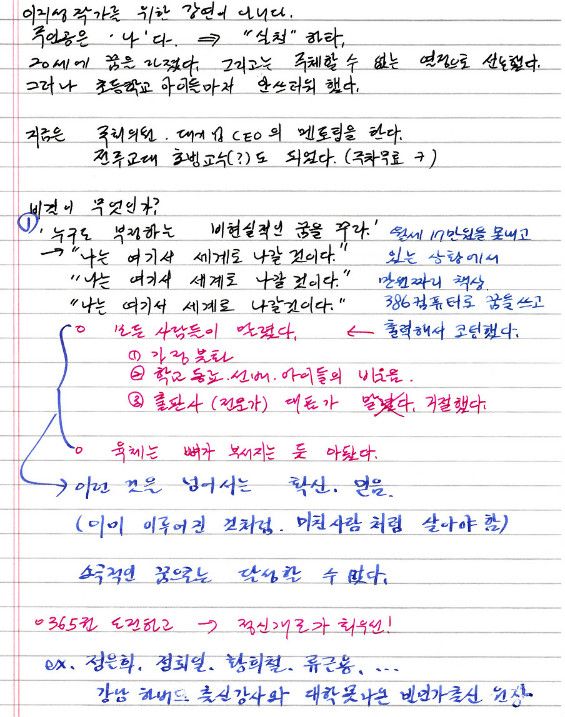 이지성 작가를 위한 강연이 아니다.
주인공은 '나'다. ⇒ "실천" 하라.
20세에 꿈을 가졌다. 그리고는 주체할 수 없는 열정으로 선포했다.
그러나 초등학교 아이들마저 안쓰러워 했다.
지금은 국회의원. 대기업 CEO의 멘토링을 한다.
전주교대 초빙교수(?)도 되었다. (주차무료 ㅋ)
비결이 무엇인가?
① '누구도 부정하는 비현실적인 꿈을 꾸라.'
→ "나는 여기서 세계로 나갈 것이다."
"나는 여기서 세계로 나갈 것이다."
"나는 여기서 세계로 나갈것이다."
월세 17만원을 못내고
있는 상황에서
만원짜리 책상
386컴퓨터로 꿈을쓰고
출력해서 코팅했다.
○ 모든 사람들이 말렸다. ←
① 가정 불화
② 학교 동료. 선배. 아이들의 비웃음.
③ 출판사 (전문가) 대표가 말렸다. 거절했다.
○ 육체는 뼈가 부서지는 듯 아팠다.
→ 이런 것을 넘어서는 확신. 믿음.
(이미 이루어진 것처럼. 미친사람처럼 살아야 함)
소극적인 꿈으로는 달성할 수 없다.
○ 365권 도전하고 → 정신개조가 최우선!
ex. 정은희. 정회일. 황희철. 류근용. ...
강남 하버드 출신강사와 대학못나온 빈민가출신 원장